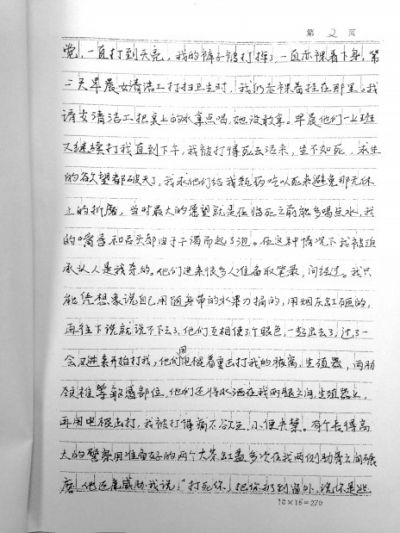 第 2 页
觉，一直打到天亮，我的裤子被打掉了，一直赤裸着下身，第
二天早晨女清洁工打扫卫生时，我仍赤裸着挂在那里。我
请女清洁工把桌上的水拿点喝，她没敢拿。早晨他们一上班
又继续打我直到下午，我被打得死去活来，生不如死，求生
的欲望都破灭了，我求他们给我
上的折磨，当时最大的愿望就是在临死之前能多喝点水，我
的嘴唇和舌头都由于干渴而起了泡。在这种情况下我被迫
承认人是我杀的。他们进来很多人准备取笔录，问经过。我只
能凭想象说自己用随身带的水果刀捅的，用烟灰缸砸的，
再往下说就说不下去了，他们互相使了个眼色，一起出去了，过了一
会又进来开始打我，他们用电棍着重击打我的裤裆，生殖器，两肋
颈椎等敏感部位，他们还将水洒在我两腿之间，生殖器上，
再用电棍击打，我被打得痛不欲生，小便失禁。有个长得高
大的警察用准备好的两个大茶缸盖多次在我两侧肋骨之间碾
磨，他还威胁我说：“打死你，把你扔到窗外，说你是逃
18×15=270